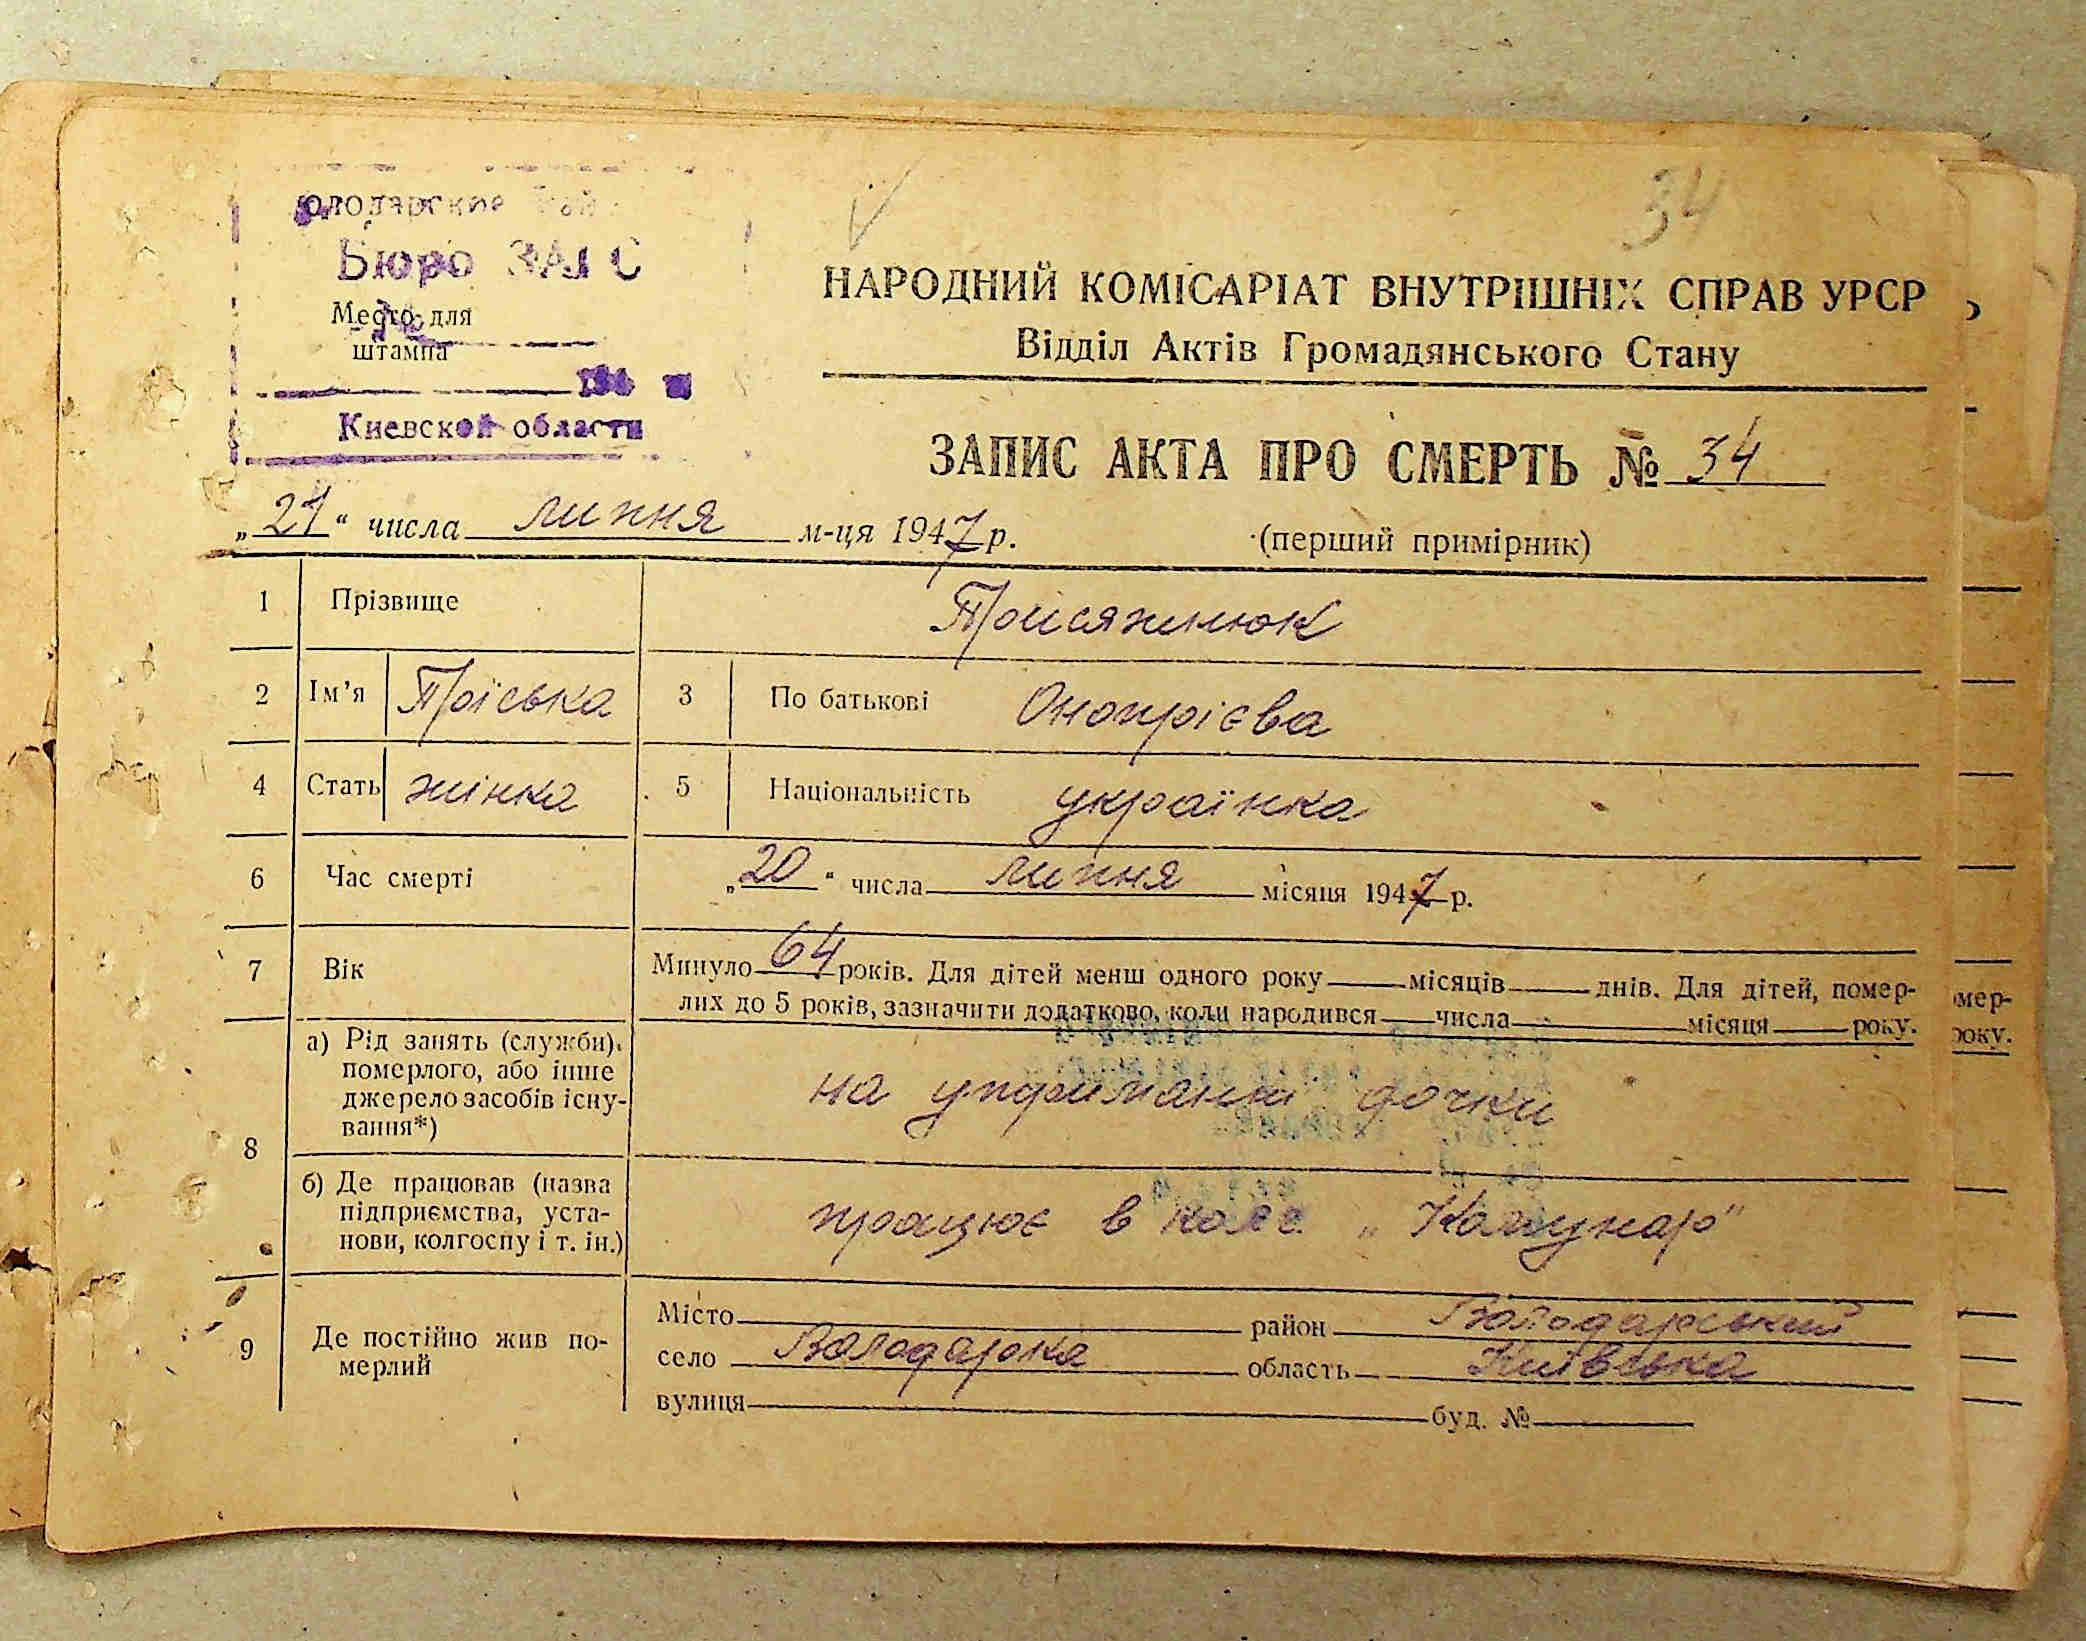 34
Бюро ЗАГС
Место для
штампа
Киевской области
НАРОДНИЙ КОМІСАРІАТ ВНУТРІШНІХ СПРАВ УРСР
Відділ Актів Громадянського Стану
ЗАПИС АКТА ПРО СМЕРТЬ № 34
„21“ числа липня м-ця 1947 р. (перший примірник)
1 Прізвище Присяжнюк
2 Ім'я Пріська 3 По батькові Онопрієва
4 Стать жінка 5 Національність українка
6 Час смерті „20“ числа липня місяця 1947 р.
7 Вік Минуло 64 років. Для дітей менш одного року місяців днів. Для дітей, помер-
лих до 5 років, зазначити додатково, коли народився числа місяця року.
8 а) Рід занять (служби)
померлого, або інше
джерело засобів існу-
вання*)
на утриманні дочки
б) Де працював (назва
підприємства, уста-
нови, колгоспу і т. ін.)
працює в колг. „Комунар"
9 Де постійно жив по-
мерлий
Місто район Володарський
село Володарка область Київська
вулиця буд. №